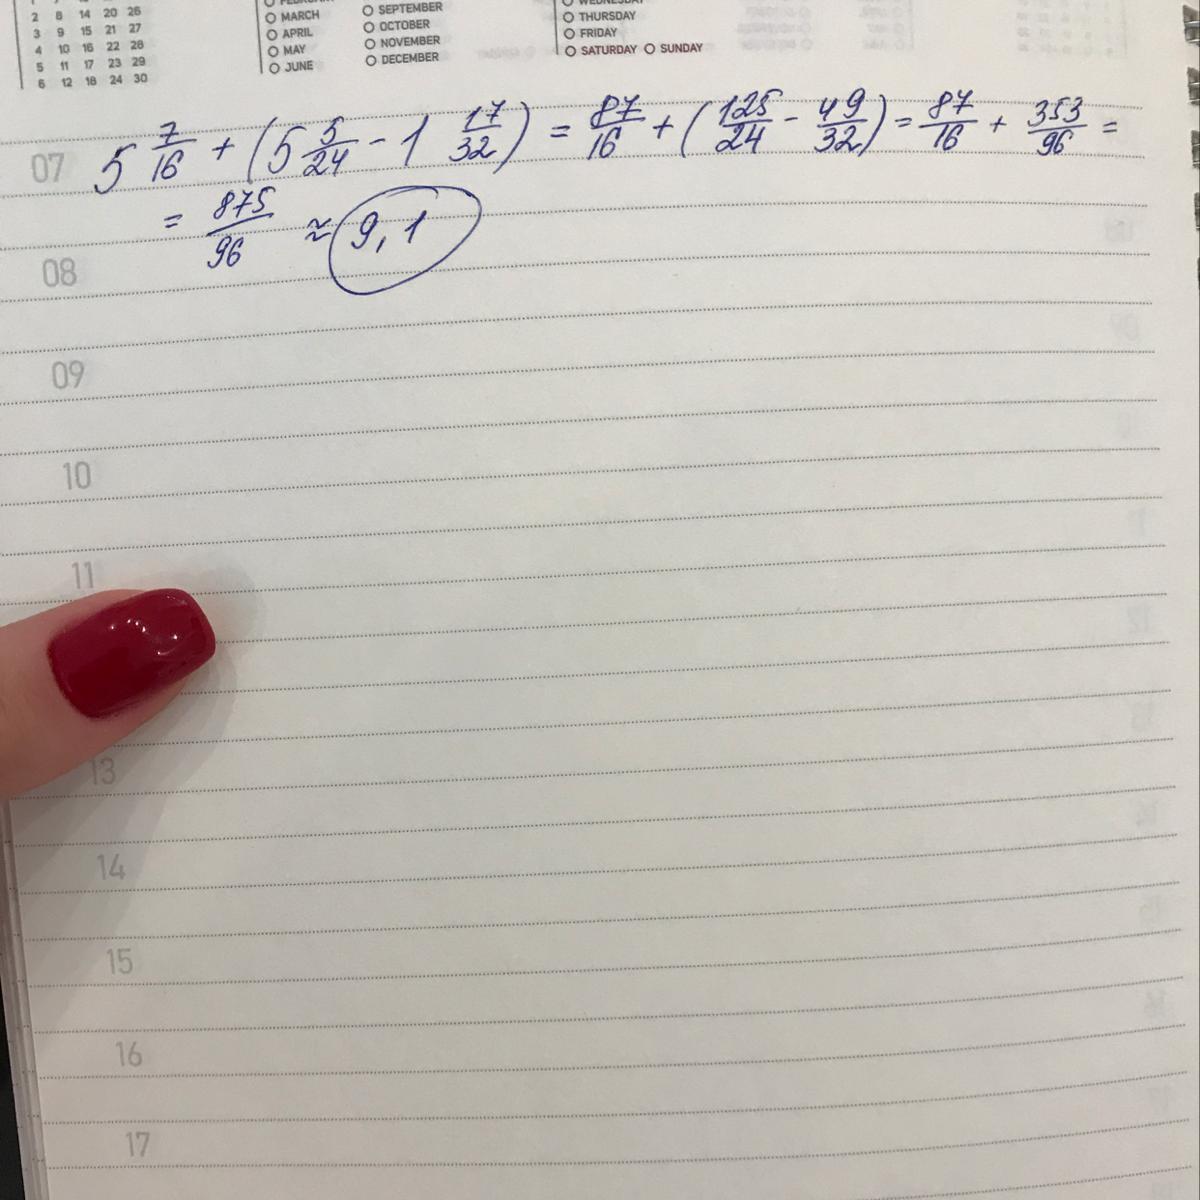 2 8 14 20 26
3 9 15 21 27
4 10 16 22 28
5 11 17 23 29
6 12 18 24 30
MARCH
APRIL
MAY
JUNE
SEPTEMBER
OCTOBER
NOVEMBER
DECEMBER
WEDNESDAY
THURSDAY
FRIDAY
SATURDAY SUNDAY
07 5 7/16 + (5 5/24 - 1 17/32) = 87/16 + (125/24 - 49/32) = 87/16 + 353/96 =
= 875/96 ≈ 9,1
08
09
10
11
13
14
15
16
17